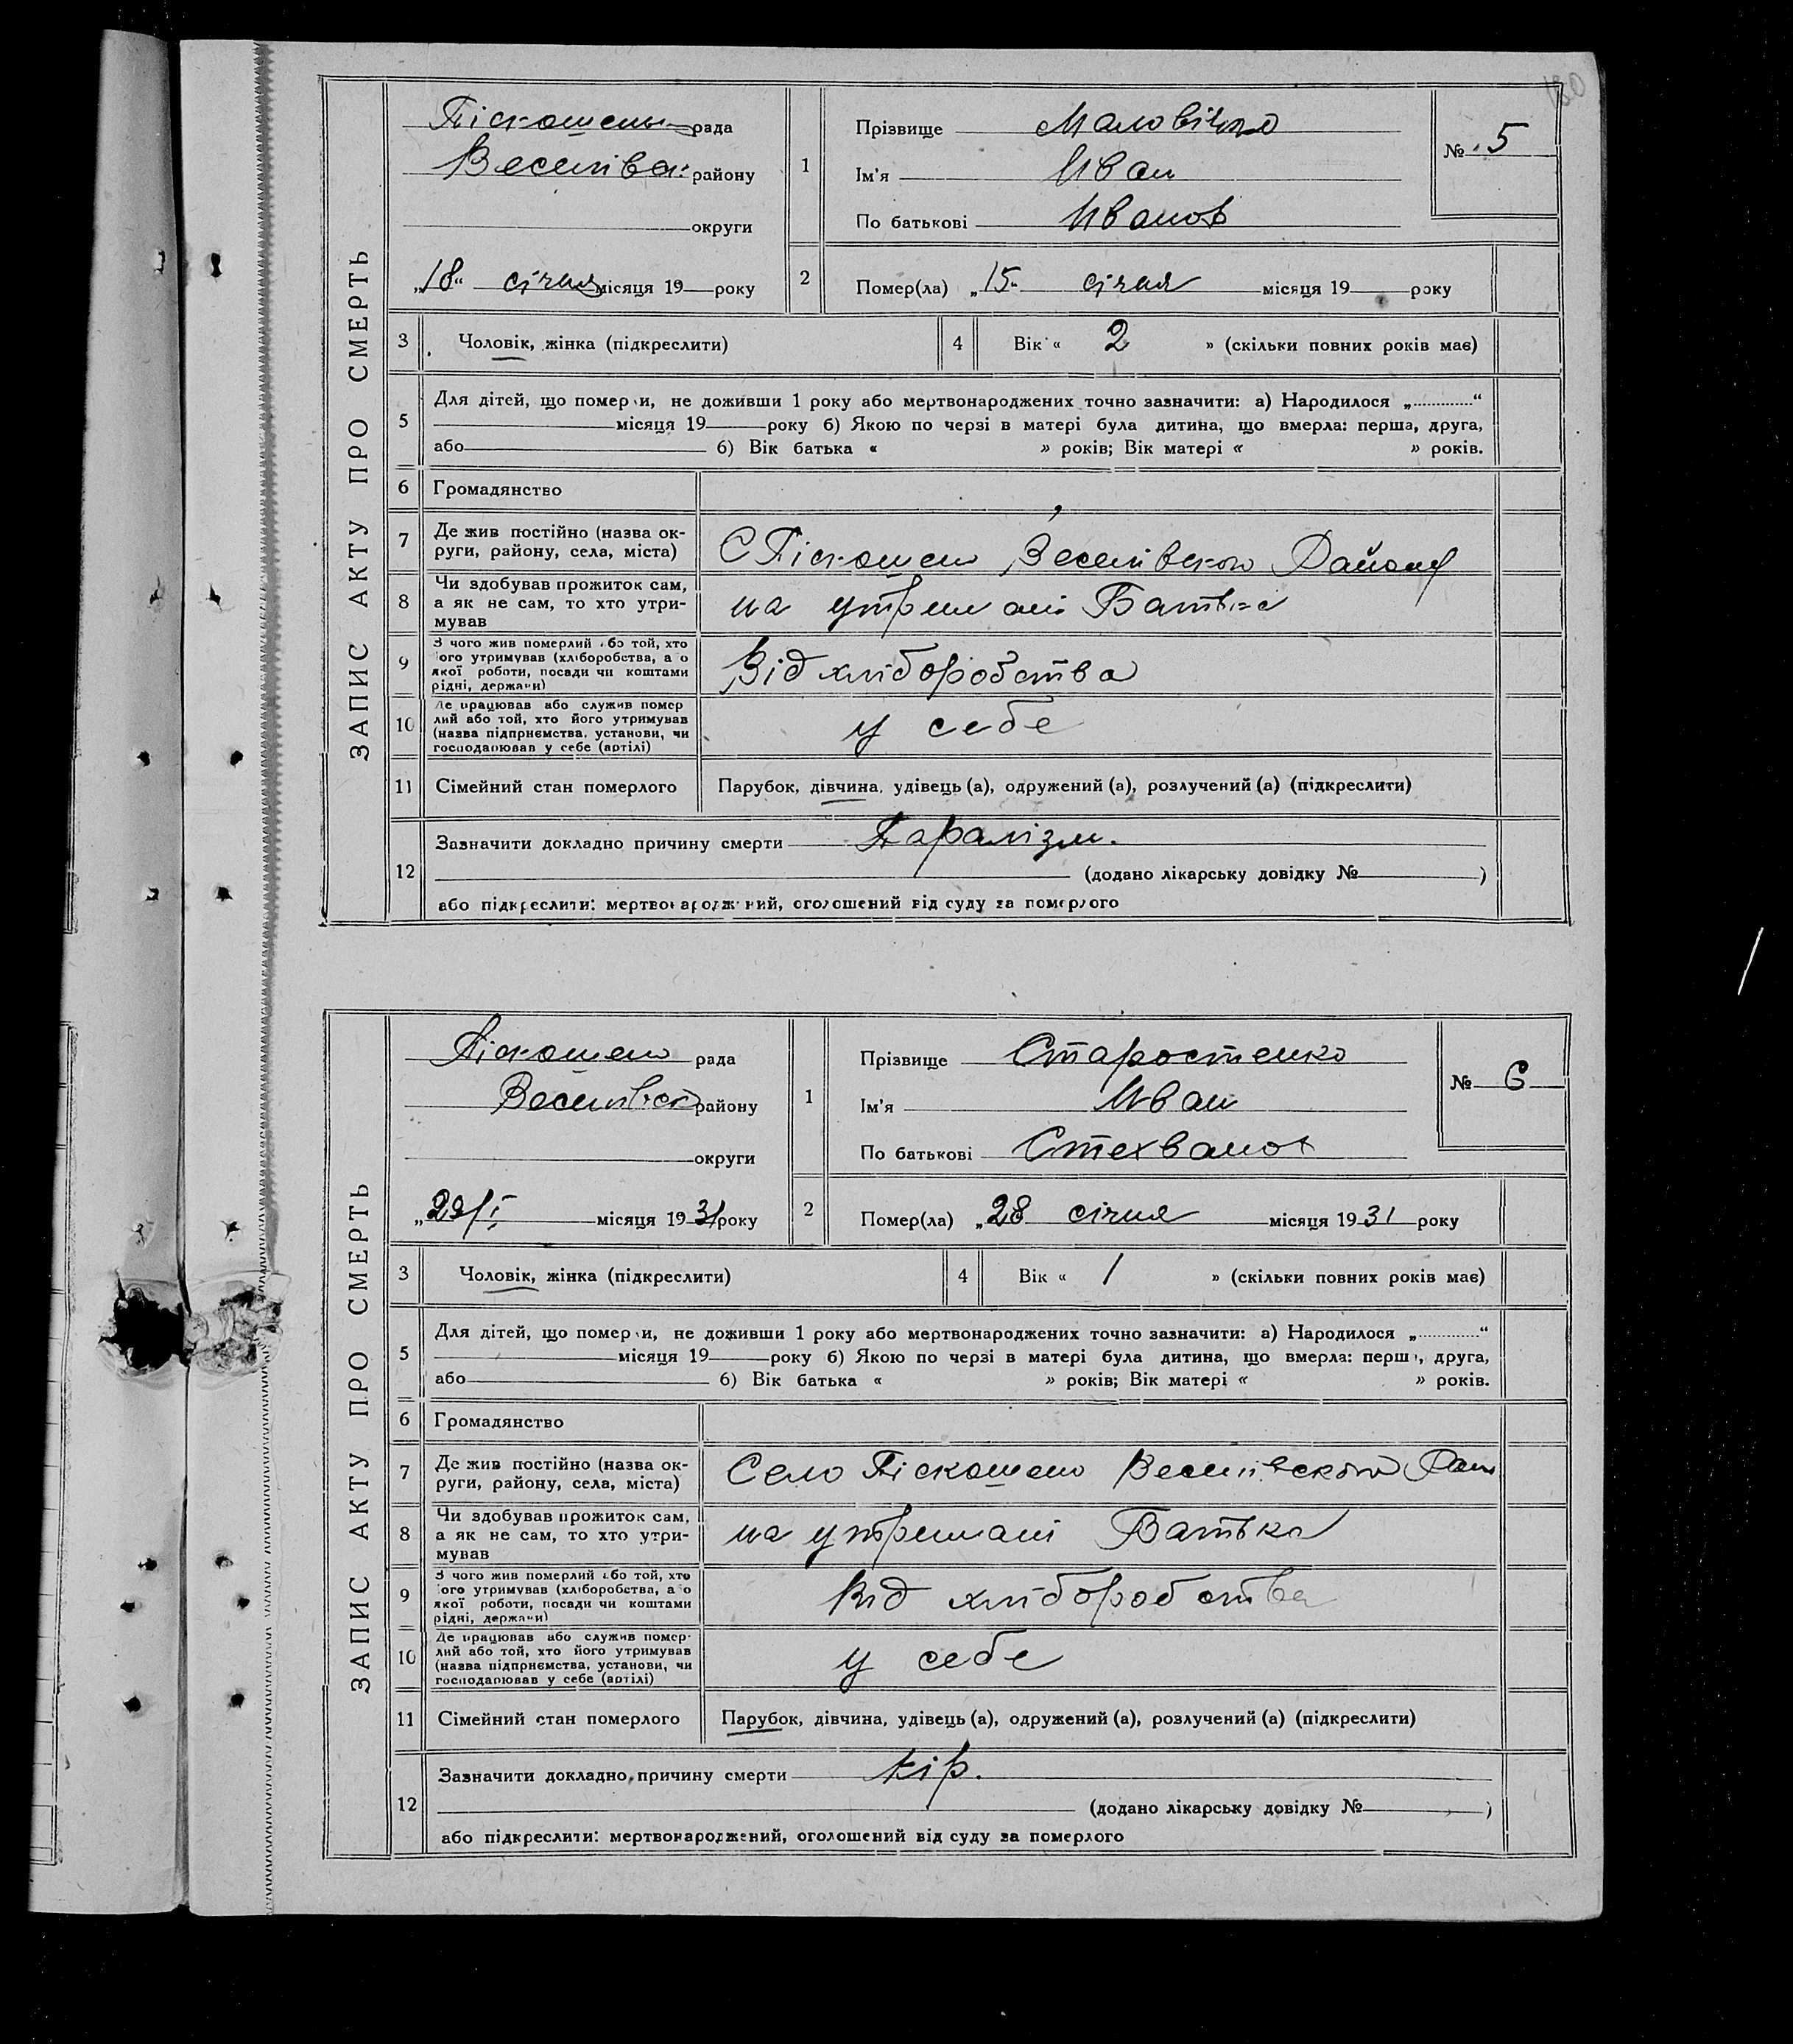 130
ЗАПИС АКТУ ПРО СМЕРТЬ
Піскошенс рада
Веселівск району
округи
„18“ січня місяця 19 року
1
Прізвище Маловічко
Ім'я Иван
По батькові Иванов
№ 5
2 Помер(ла) „15„ січня місяця 19 року
3 Чоловік, жінка (підкреслити)
4 Вік « 2 » (скільки повних років має)
5 Для дітей, що померли, не доживши 1 року або мертвонароджених точно зазначити: а) Народилося „ “
місяця 19 року б) Якою по черзі в матері була дитина, що вмерла: перша, друга,
або б) Вік батька « » років; Вік матері « » років.
6 Громадянство
7 Де жив постійно (назва ок-
руги, району, села, міста)
С Піскошено Веселівского Району
8 Чи здобував прожиток сам,
а як не сам, то хто утри-
мував
на утримані Батька
9 З чого жив померлий або той, хто
його утримував (хліборобства, або
якої роботи, посади чи коштами
рідні, держави)
Від хліборобства
10 Де працював або служив помер
лий або той, хто його утримував
(назва підприємства, установи, чи
господарював у себе (артілі)
у себе
11 Сімейний стан померлого Парубок, дівчина, удівець (а), одружений (а), розлучений (а) (підкреслити)
12 Зазначити докладно причину смерти Паралізм.
(додано лікарську довідку № )
або підкреслити: мертвонароджений, оголошений від суду за померлого
ЗАПИС АКТУ ПРО СМЕРТЬ
Піскошено рада
Веселівск району
округи
„29/I місяця 1931 року
1
Прізвище Старостенко
Ім'я Иван
По батькові Стехванов
№ 6
2 Помер(ла) „28 січня місяця 1931 року
3 Чоловік, жінка (підкреслити)
4 Вік « 1 » (скільки повних років має)
5 Для дітей, що померли, не доживши 1 року або мертвонароджених точно зазначити: а) Народилося „ “
місяця 19 року б) Якою по черзі в матері була дитина, що вмерла: перша, друга,
або б) Вік батька « » років; Вік матері « » років.
6 Громадянство
7 Де жив постійно (назва ок-
руги, району, села, міста)
Село Піскошено Веселівского Рай
8 Чи здобував прожиток сам,
а як не сам, то хто утри-
мував
на утримані Батька
9 З чого жив померлий або той, хто
його утримував (хліборобства, або
якої роботи, посади чи коштами
рідні, держави)
Від хліборобства
10 Де працював або служив помер-
лий або той, хто його утримував
(назва підприємства, установи, чи
господарював у себе (артілі)
у себе
11 Сімейний стан померлого Парубок, дівчина, удівець (а), одружений (а), розлучений (а) (підкреслити)
12 Зазначити докладно причину смерти кір.
(додано лікарську довідку № )
або підкреслити: мертвонароджений, оголошений від суду за померлого